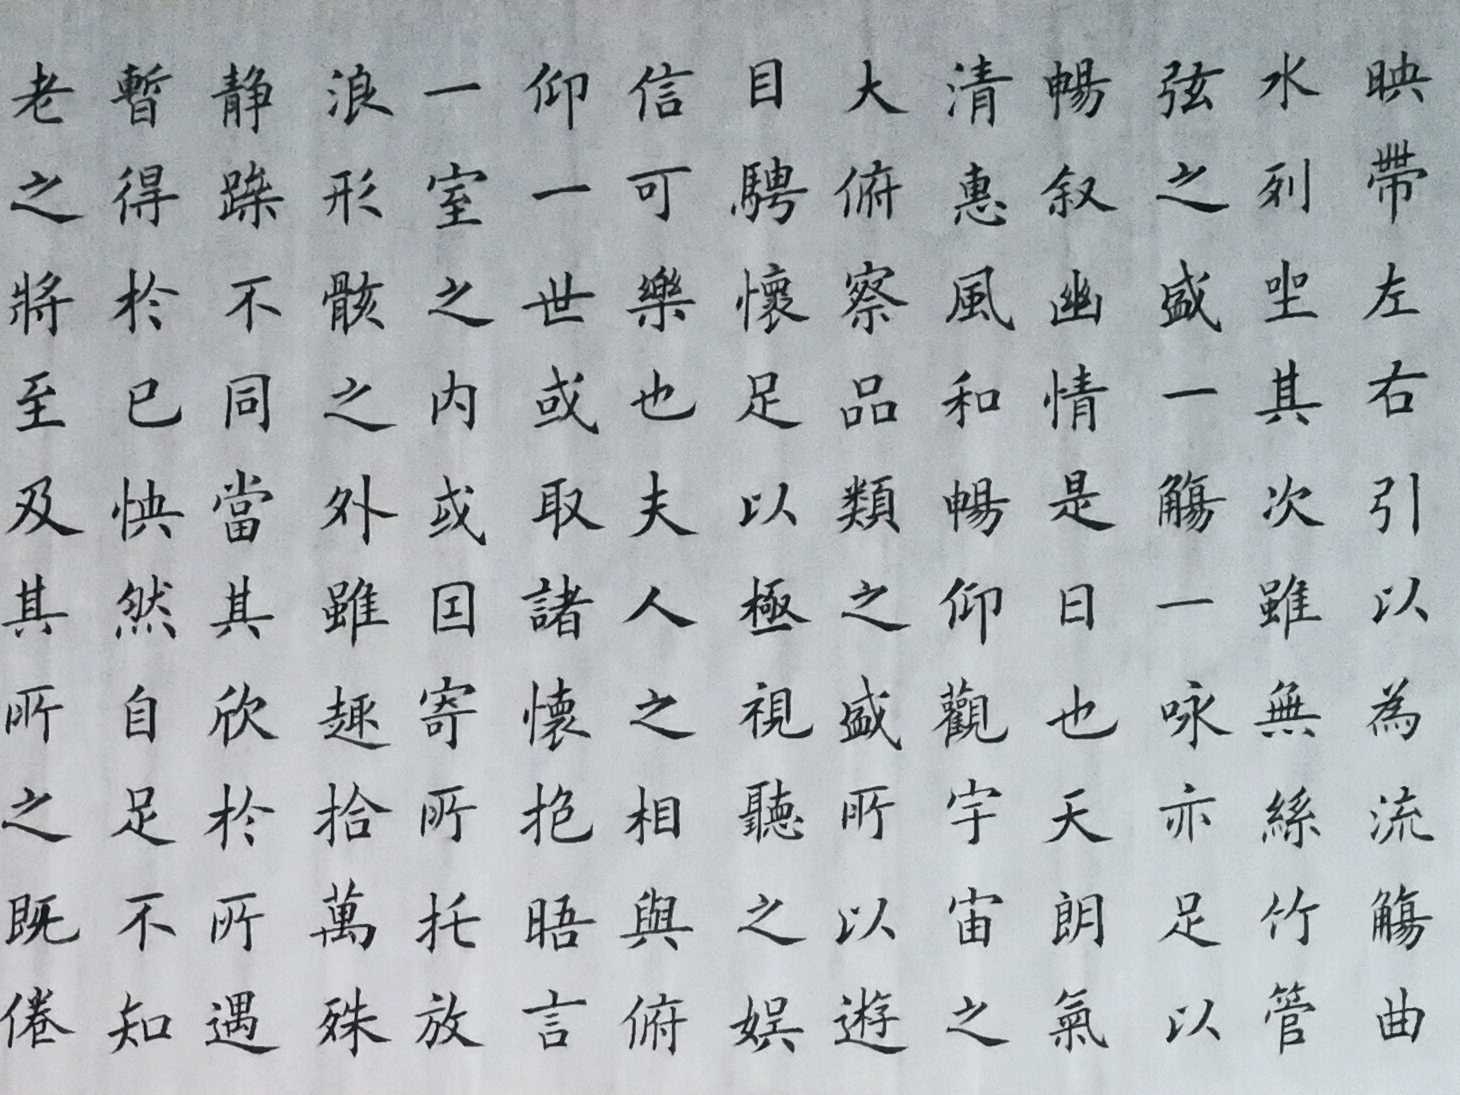 映帶左右引以為流觴曲
水列坐其次雖無絲竹管
弦之盛一觴一咏亦足以
暢叙幽情是日也天朗氣
清惠風和暢仰觀宇宙之
大俯察品類之盛所以遊
目騁懷足以極視聽之娱
信可樂也夫人之相與俯
仰一世或取諸懷抱晤言
一室之內或因寄所托放
浪形骸之外雖趣捨萬殊
静躁不同當其欣於所遇
暫得於已怏然自足不知
老之將至及其所之既倦